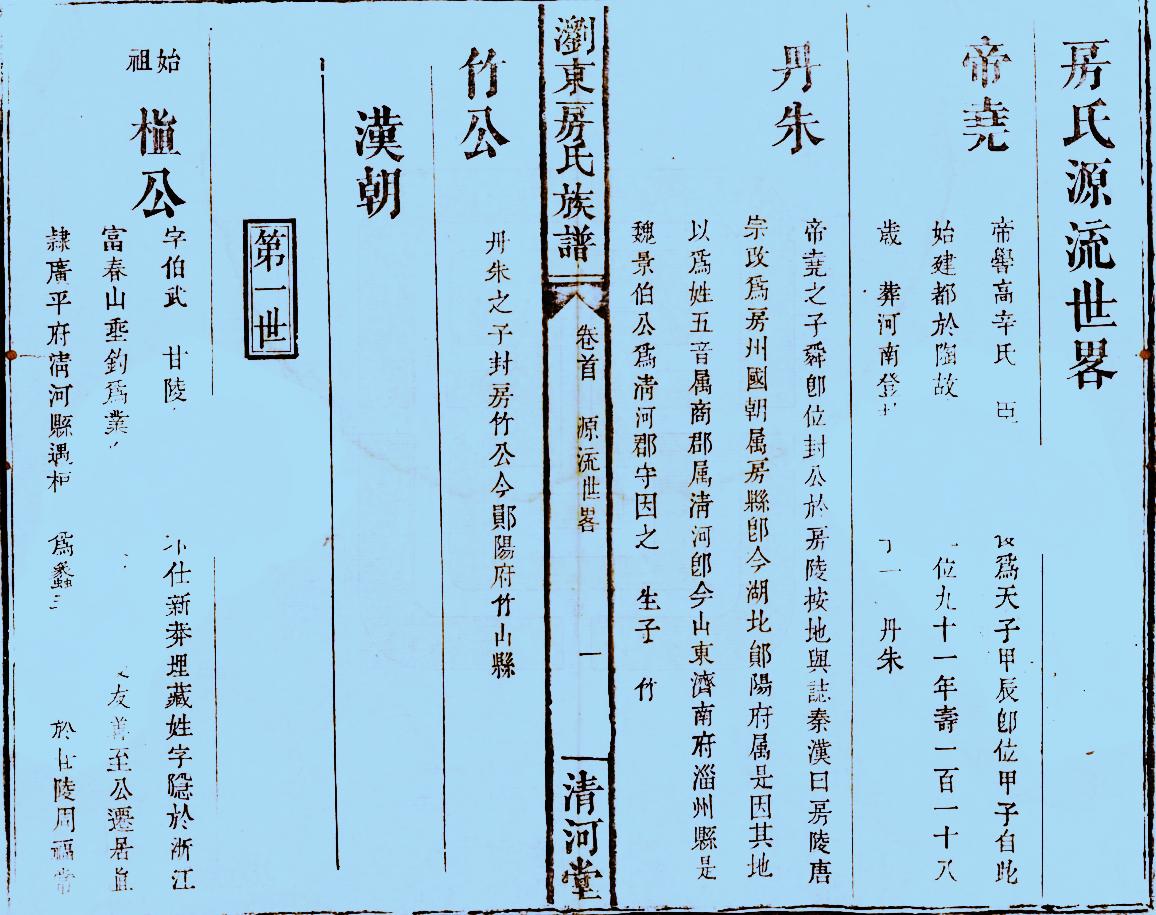 房氏源流世畧
帝堯
帝嚳高辛氏
為天子甲辰卽位甲子自此
始建都於陶故
位九十一年壽一百一十八
歲 葬河南登
一 丹朱
丹朱
帝堯之子舜卽位封公於房陵按地輿誌秦漢曰房陵唐
宗改爲房州國朝属房縣卽今湖北鄖陽府属是因其地
以爲姓五音属商郡属清河卽今山東濟南府淄州縣是
魏景伯公爲清河郡守因之 生子 竹
瀏東房氏族譜
卷首 源流世畧 一
清河堂
竹公
丹朱之子封房竹公今鄖陽府竹山縣
漢朝
第一世
始祖
植公
字伯武 甘陵
仕新莽埋藏姓字隱於浙江
富春山垂釣爲業
友善至公遷居直
隸廣平府清河縣遇
爲蠡
於甘陵周福常